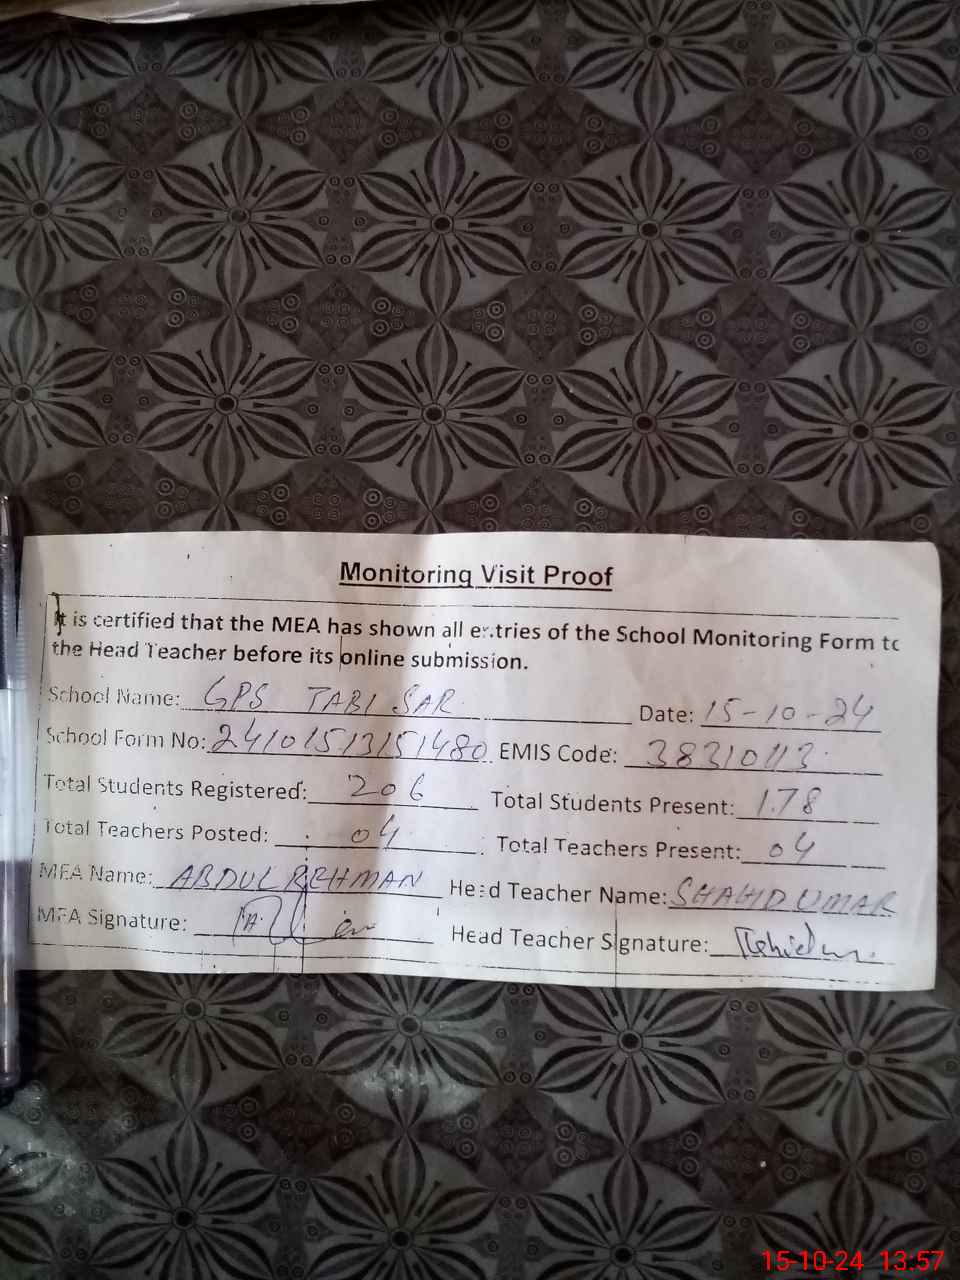 Monitoring Visit Proof
It is certified that the MEA has shown all entries of the School Monitoring Form to
the Head Teacher before its online submission.
School Name: GPS TABI SAR Date: 15-10-24
School Form No: 24101513151480 EMIS Code: 38310113
Total Students Registered: 206 Total Students Present: 178
Total Teachers Posted: 04 Total Teachers Present: 04
MEA Name: ABDUL REHMAN Head Teacher Name: SHAHID UMAR
MEA Signature: Head Teacher Signature:
15-10-24 13:57